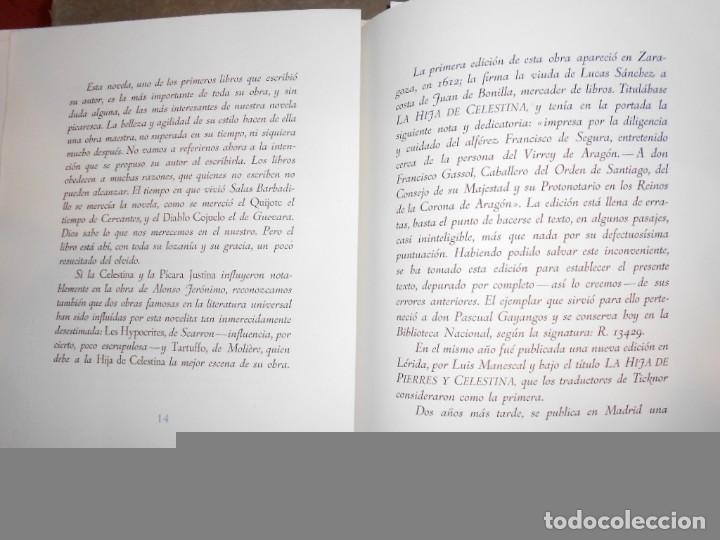 Esta novela, uno de los primeros libros que escribió
su autor, es la más importante de toda su obra, y sin
duda alguna, de las más interesantes de nuestra novela
picaresca. La belleza y agilidad de su estilo hacen de ella
una obra maestra, no superada en su tiempo, ni siquiera
mucho después. No vamos a referirnos ahora a la inten-
ción que se propuso su autor al escribirla. Los libros
obedecen a muchas razones, que quienes no escriben no
pueden alcanzar. El tiempo en que vivió Salas Barbadi-
llo se merecía la novela, como se mereció el Quijote el
tiempo de Cervantes, y el Diablo Cojuelo el de Guevara.
Dios sabe lo que nos merecemos en el nuestro. Pero el
libro está ahí, con toda su lozanía y su gracia, un pocó
resucitado del olvido.
Si la Celestina y la Pícara Justina influyeron nota-
blemente en la obra de Alonso Jerónimo, reconozcamos
también que dos obras famosas en la literatura universal
han sido influídas por esta novelita tan inmerecidamente
desestimada: Les Hypocrites, de Scarron—influencia, por
cierto, poco escrupulosa—y Tartuffo, de Molière, quien
debe a la Hija de Celestina la mejor escena de su obra.
14
La primera edición de esta obra apareció en Zara-
goza, en 1612; la firma la viuda de Lucas Sánchez a
costa de Juan de Bonilla, mercader de libros. Titulábase
LA HIJA DE CELESTINA, y tenía en la portada la
siguiente nota y dedicatoria: «impresa por la diligencia
y cuidado del alférez Francisco de Segura, entretenido
cerca de la persona del Virrey de Aragón.—A don
Francisco Gassol, Caballero del Orden de Santiago, del
Consejo de su Majestad y su Protonotario en los Reinos
de la Corona de Aragón». La edición está llena de erra-
tas, hasta el punto de hacerse el texto, en algunos pasajes,
casi ininteligible, más que nada por su defectuosísima
puntuación. Habiendo podido salvar este inconveniente,
se ha tomado esta edición para establecer el presente
texto, depurado por completo—así lo creemos—de sus
errores anteriores. El ejemplar que sirvió para ello perte-
neció a don Pascual Gayangos y se conserva hoy en la
Biblioteca Nacional, según la signatura: R. 13429.
En el mismo año fué publicada una nueva edición en
Lérida, por Luis Manescal y bajo el título LA HIJA DE
PIERRES Y CELESTINA, que los traductores de Ticknor
consideraron como la primera.
Dos años más tarde, se publica en Madrid una
todocoleccion.net